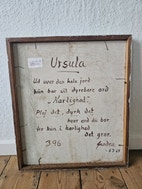 Ursula
Ud over den hele jord
kun har ét dyrebare ord
"Kærlighed"
Plej det, dyrk det
hver end du bor
for kun i kærlighed
det gror.